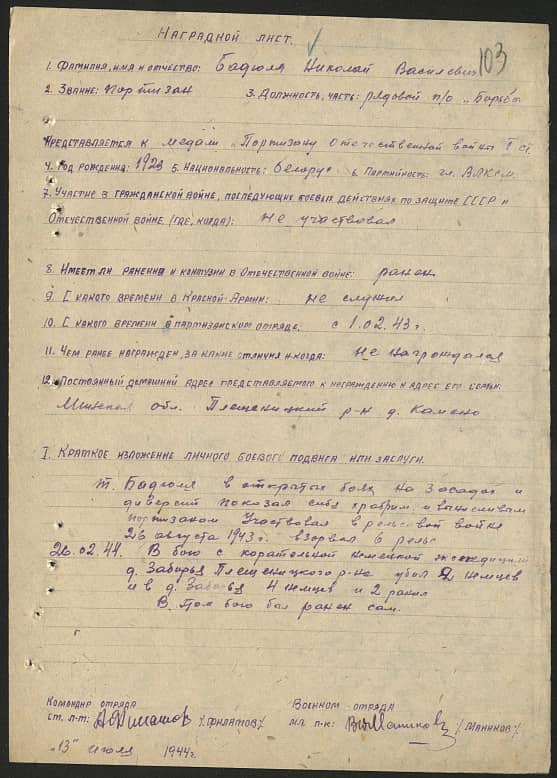 103
НАГРАДНОЙ ЛИСТ.
1. Фамилия, имя и отчество: Бадюля Николай Василевич
2. Звание: партизан 3. Должность, часть: рядовой п/о „Борьба
Представляется к медали „Партизану Отечественной войны I ст.
4. Год рождения: 1923 5. Национальность: белорус 6. Партийность: чл. ВЛКСМ.
7. Участие в гражданской войне, последующих боевых действиях по защите СССР и
Отечественной войне (где, когда): не участвовал
8. Имеет ли ранения и контузии в Отечественной войне: ранен
9. С какого времени в Красной Армии: не служил
10. С какого времени в партизанском отряде: с 1.02.43 г.
11. Чем ранее награжден, за какие отличия и когда: не награждался
12. Постоянный домашний адрес представляемого к награждению и адрес его семьи:
Минская обл. Плещеницкий р-н д. Камено
I. Краткое изложение личного боевого подвига или заслуги.
т. Бадюля в открытых боях на засадах и
диверсий показал себя храбрым и выносливым
партизаном Участвовал в рельсовой войне
26 августа 1943 г. взорвал 6 рельс
26.02.44. В бою с карательной немецкой экспедицией
д. Заборье Плещеницкого р-на убил 2 немцев
и в д. Заборье 4 немцев и 2 ранил
В том бою был ранен сам.
Командир отряда
ст. л-т: /Филатов/
Военком отряда
мл. п-к: /Маликов/
„13" июля 1944 г.